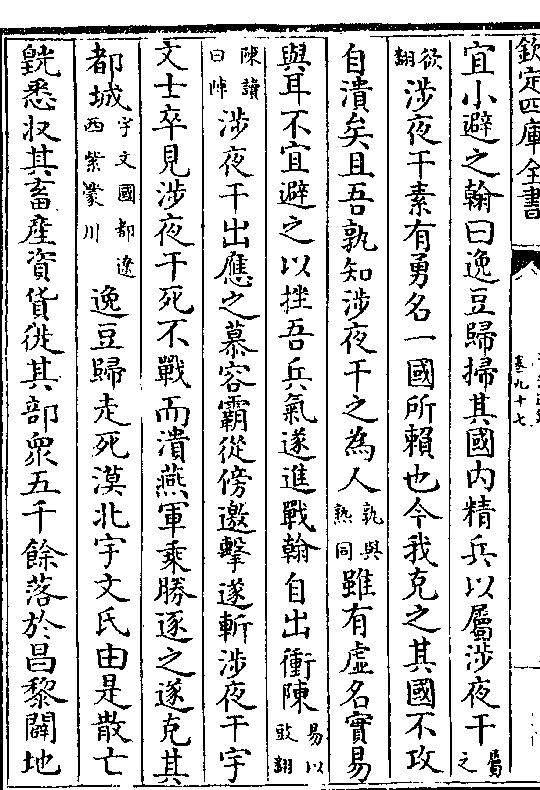 欽定四庫全書
卷九十七
宜小避之翰曰逸豆歸掃其國内精兵以屬涉夜干屬之
欲翻涉夜干素有勇名一國所賴也今我克之其國不攻
自潰矣且吾孰知涉夜干之為人孰與熟同雖有虚名實易
與耳不宜避之以挫吾兵氣遂進戰翰自出衝陳易以䜴翻
陳讀曰陣涉夜干出應之慕容霸從傍邀擊遂斬涉夜干宇
文士卒見涉夜干死不戰而潰燕軍乘勝逐之遂克其
都城宇文國都遼西紫濛川逸豆歸走死漠北宇文氏由是散亡
皝悉收其畜産資貨徙其部衆五千餘落於昌黎闢地